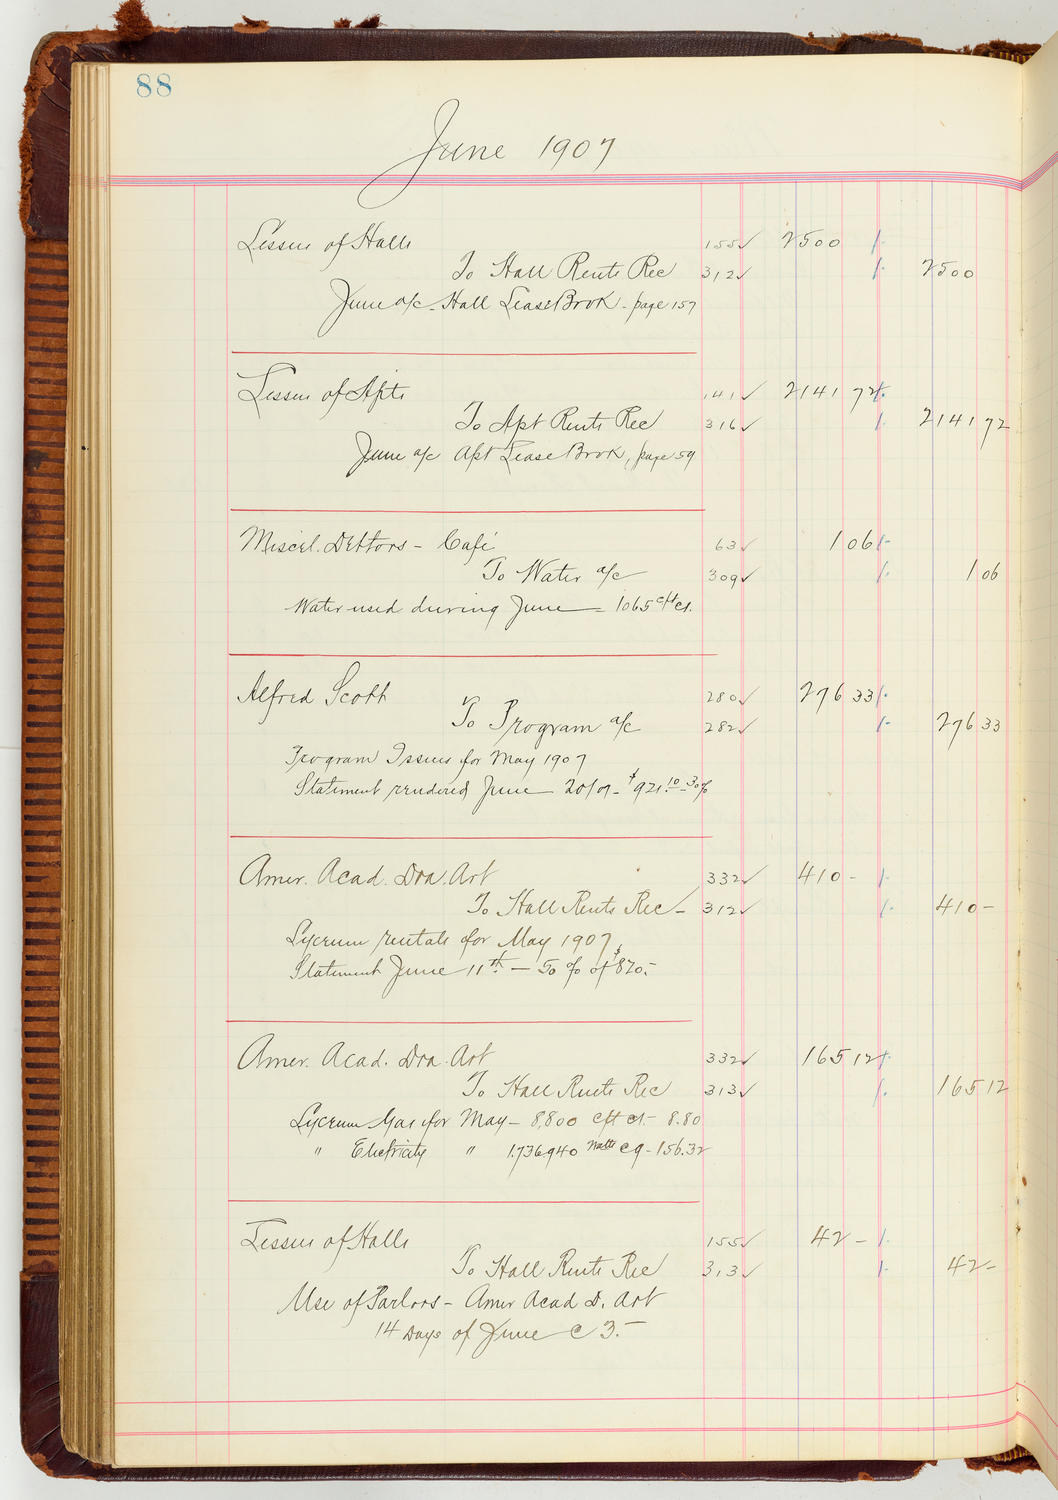 88
June 1907
Lessees of Halls 155 ✓ 2500
To Hall Rents Rec 312 ✓ 2500
June a/c - Hall Lease Book - page 157
Lessees of Apts 141 ✓ 2141 72
To Apt Rents Rec 316 ✓ 2141 72
June a/c Apt Lease Book, page 59
Miscel. Debtors - Café 63 ✓ 1 06
To Water a/c 309 ✓ 1 06
Water used during June 1065 cft
Alfred Scott 280 ✓ 276 33
To Program a/c 282 ✓ 276 33
Program Issues for May 1907
Statement rendered June 20/07 - $921.10 - 30%
Amer. Acad. Dra. Art 332 ✓ 410 -
To Hall Rents Rec - 312 ✓ 410 -
Lyceum rentals for May 1907
Statement June 11th - 50% of $820.-
Amer. Acad. Dra. Art 332 ✓ 165 12
To Hall Rents Rec 313 ✓ 165 12
Lyceum Gas for May - 8,800 cft - 8.80
" Electricity " 1,736,940 Watts - 156.32
Lessees of Halls 155 ✓ 42 -
To Hall Rents Rec 313 ✓ 42 -
Use of Parlors - Amer Acad D. Art
14 Days of June @ 3.-